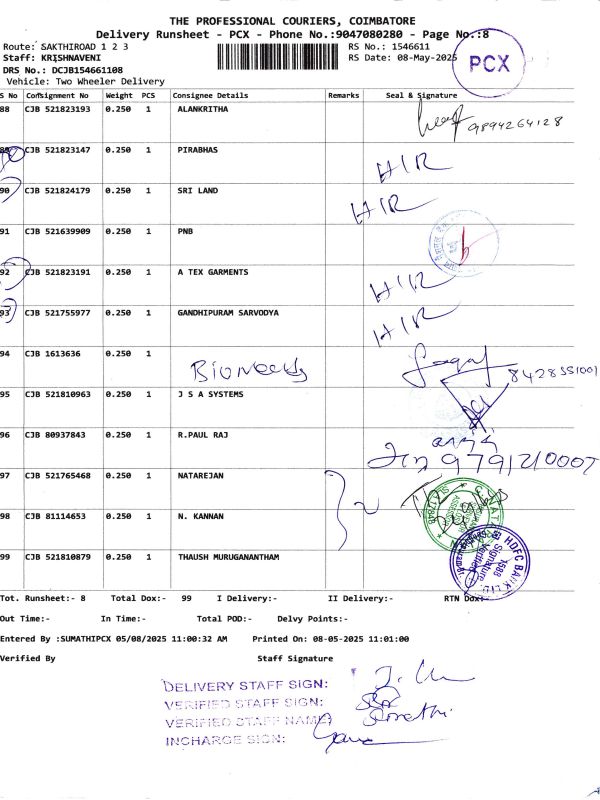 THE PROFESSIONAL COURIERS, COIMBATORE
Delivery Runsheet - PCX - Phone No.:9047080280 - Page No.:8
Route: SAKTHIROAD 1 2 3 RS No.: 1546611
Staff: KRISHNAVENI RS Date: 08-May-2025
PCX
DRS No.: DCJB154661108
Vehicle: Two Wheeler Delivery
S No Consignment No Weight PCS Consignee Details Remarks Seal & Signature
88 CJB 521823193 0.250 1 ALANKRITHA 9894264128
89 CJB 521823147 0.250 1 PIRABHAS HIR
90 CJB 521824179 0.250 1 SRI LAND HIR
91 CJB 521639909 0.250 1 PNB
92 CJB 521823191 0.250 1 A TEX GARMENTS HIR
93 CJB 521755977 0.250 1 GANDHIPURAM SARVODYA HIR
94 CJB 1613636 0.250 1 Bioneeds 8428551001
95 CJB 521810963 0.250 1 J S A SYSTEMS
96 CJB 80937843 0.250 1 R.PAUL RAJ 9791210007
97 CJB 521765468 0.250 1 NATAREJAN
98 CJB 81114653 0.250 1 N. KANNAN
99 CJB 521810879 0.250 1 THAUSH MURUGANANTHAM
HDFC BANK LTD
Signature Verified
Tot. Runsheet:- 8 Total Dox:- 99 I Delivery:- II Delivery:- RTN Dox:-
Out Time:- In Time:- Total POD:- Delvy Points:-
Entered By :SUMATHIPCX 05/08/2025 11:00:32 AM Printed On: 08-05-2025 11:01:00
Verified By Staff Signature
DELIVERY STAFF SIGN:
VERIFIED STAFF SIGN:
VERIFIED STAFF NAME)
INCHARGE SIGN: